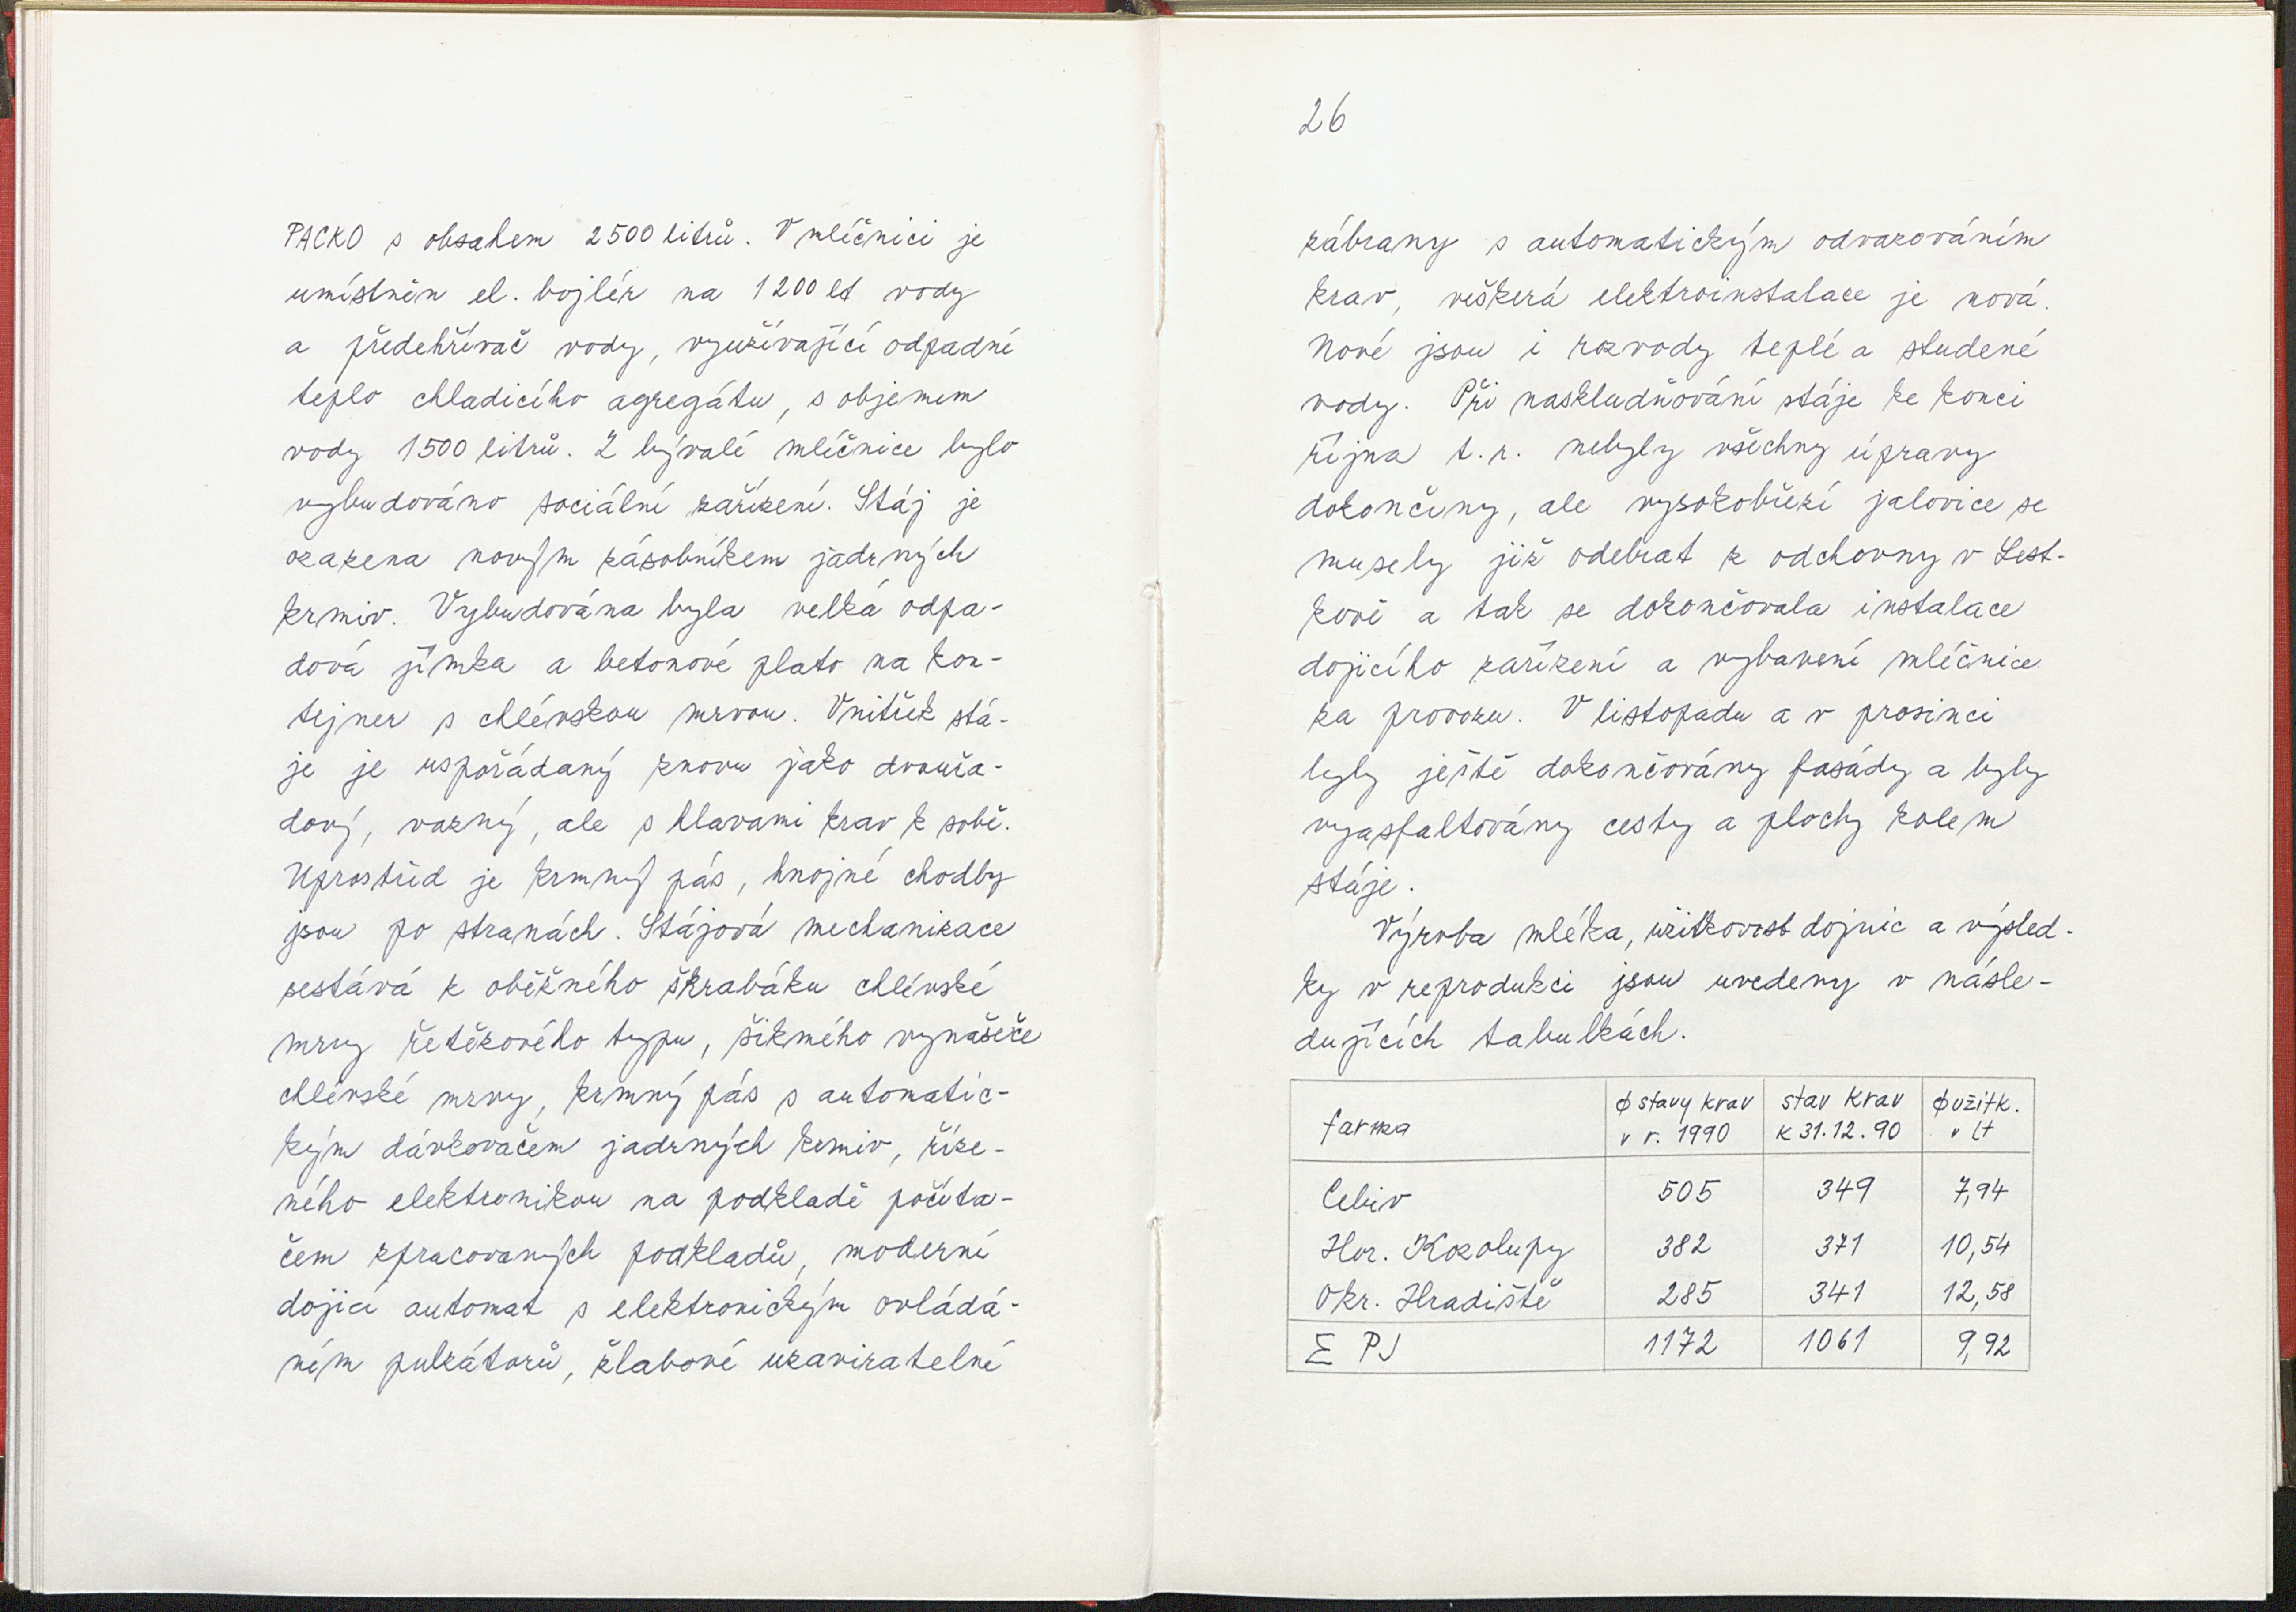 PACKO s obsahem 2500 litrů. V mléčnici je
umístněn el. bojlér na 1200 lt vody
a předehřívač vody, využívající odpadné
teplo chladicího agregátu, s objemem
vody 1500 litrů. Z bývalé mléčnice bylo
vybudováno sociální zařízení. Stáj je
osazena novým zásobníkem jadrných
krmiv. Vybudována byla velká odpa-
dová jímka a betonové plato na kon-
tejner s chlévskou mrvou. Vnitřek stá-
je je uspořádaný znovu jako dvouřa-
dový, vazný, ale s hlavami krav k sobě.
Uprostřed je krmný pás, hnojné chodby
jsou po stranách. Stájová mechanizace
sestává z oběžného škrabáku chlévské
mrvy řetězového typu, šikmého vynašeče
chlévské mrvy, krmný pás s automatic-
kým dávkovačem jadrných krmiv, říze-
ného elektronikou na podkladě počíta-
čem zpracovaných podkladů, moderní
dojicí automat s elektronickým ovládá-
ním pulzátorů, žlabové uzaviratelné
26
zábrany s automatickým odvazováním
krav, veškerá elektroinstalace je nová.
Nové jsou i rozvody teplé a studené
vody. Při naskladňování stáje ke konci
října t.r. nebyly všechny úpravy
dokončeny, ale vysokobřezí jalovice se
musely již odebrat z odchovny v Lest-
kově a tak se dokončovala instalace
dojicího zařízení a vybavení mléčnice
za provozu. V listopadu a v prosinci
byly ještě dokončovány fasády a byly
vyasfaltovány cesty a plochy kolem
stáje.
Výroba mléka, užitkovost dojnic a výsled-
ky v reprodukci jsou uvedeny v násle-
dujících tabulkách.
farma | ϕ stavy krav v r. 1990 | stav krav k 31.12.90 | ϕ užitk. v lt
Cebiv 505 349 7,94
Hor. Kozolupy 382 371 10,54
Okr. Hradiště 285 341 12,58
Σ PJ 1172 1061 9,92